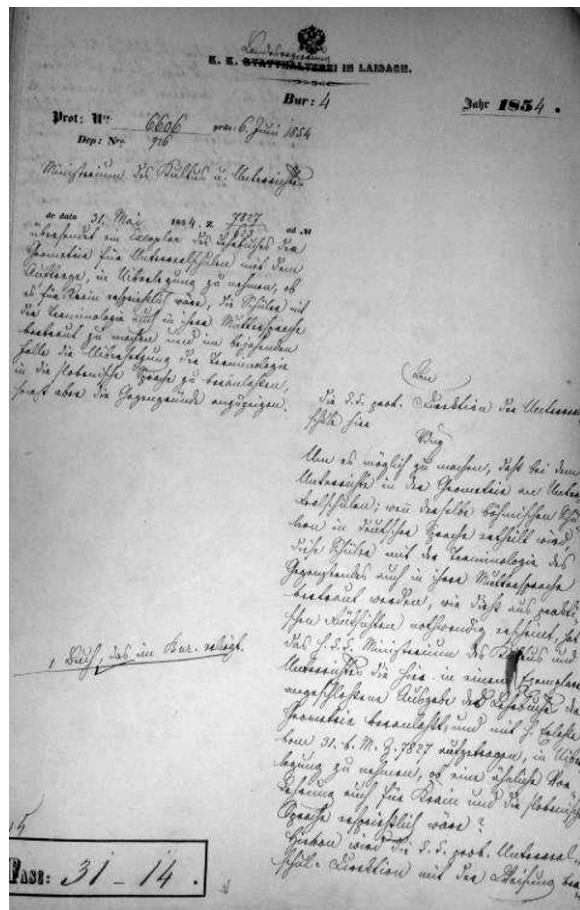 Landesregierung
K. K. STATTHALTEREI IN LAIBACH.
Bur: 4
Jahr 1854.
Prot: Nro 6606 präs: 6. Juni 1854
Dep: Nro. 926
Ministerium des Kultus u. Unterrichtes
de dato 31. Mai 1854. Z. 7827 ad Nr
übersendet ein Exemplar des Lehrbuches der
Geometrie für Unterrealschulen mit dem
Auftrage, in Uiberlegung zu nehmen, ob
es für Krain ersprießlich wäre, die Schüler mit
der Terminologie auch in ihrer Muttersprache
vertraut zu machen und im bejahenden
Falle die Uibersetzung der Terminologie
in die slovenische Sprache zu veranlassen,
sonst aber die Gegengründe anzuzeigen.
1 Buch, das im Bur. erliegt.
An
die k. k. prov. Direktion der Unterreal
schule hier
Um es möglich zu machen, daß bei dem
Unterrichte in der Geometrie an Unter
realschulen, wenn derselbe böhmischen Schü
lern in deutscher Sprache ertheilt wird,
diese Schüler mit der Terminologie des
Gegenstandes auch in ihrer Muttersprache
vertraut werden, wie dieß aus prakti
schen Rücksichten nothwendig erscheint, hat
das h. k. k. Ministerium des Kultus und
Unterrichtes die hier in einem Exemplare
angeschlossene Ausgabe des Lehrbuchs der
Geometrie veranlaßt, und mit h. Erlasse
vom 31. v. M. Z. 7827 aufgetragen, in Uiber
legung zu nehmen, ob eine ähnliche Vor
kehrung auch für Krain und die slovenische
Sprache ersprießlich wäre?
Hievon wird die k. k. prov. Unterreal
schul-Direktion mit der Weisung
15
FASZ: 31 - 14.